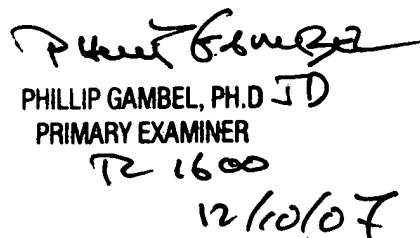 Phillip Gambel
PHILLIP GAMBEL, PH.D JD
PRIMARY EXAMINER
TC 1600
12/10/07